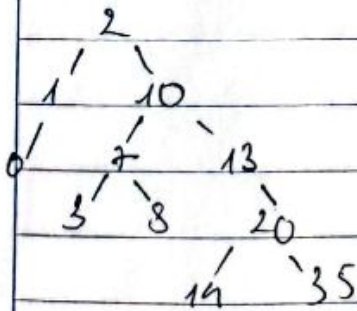 2
1 10
0 7 13
3 8 20
14 35